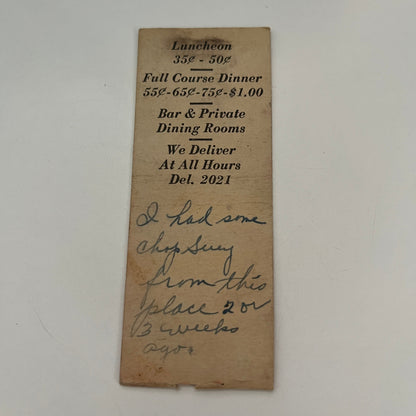 Luncheon
35¢ - 50¢
Full Course Dinner
55¢-65¢-75¢-$1.00
Bar & Private
Dining Rooms
We Deliver
At All Hours
Del. 2021
I had some
chop Suey
from this
place 2 or
3 weeks
ago.